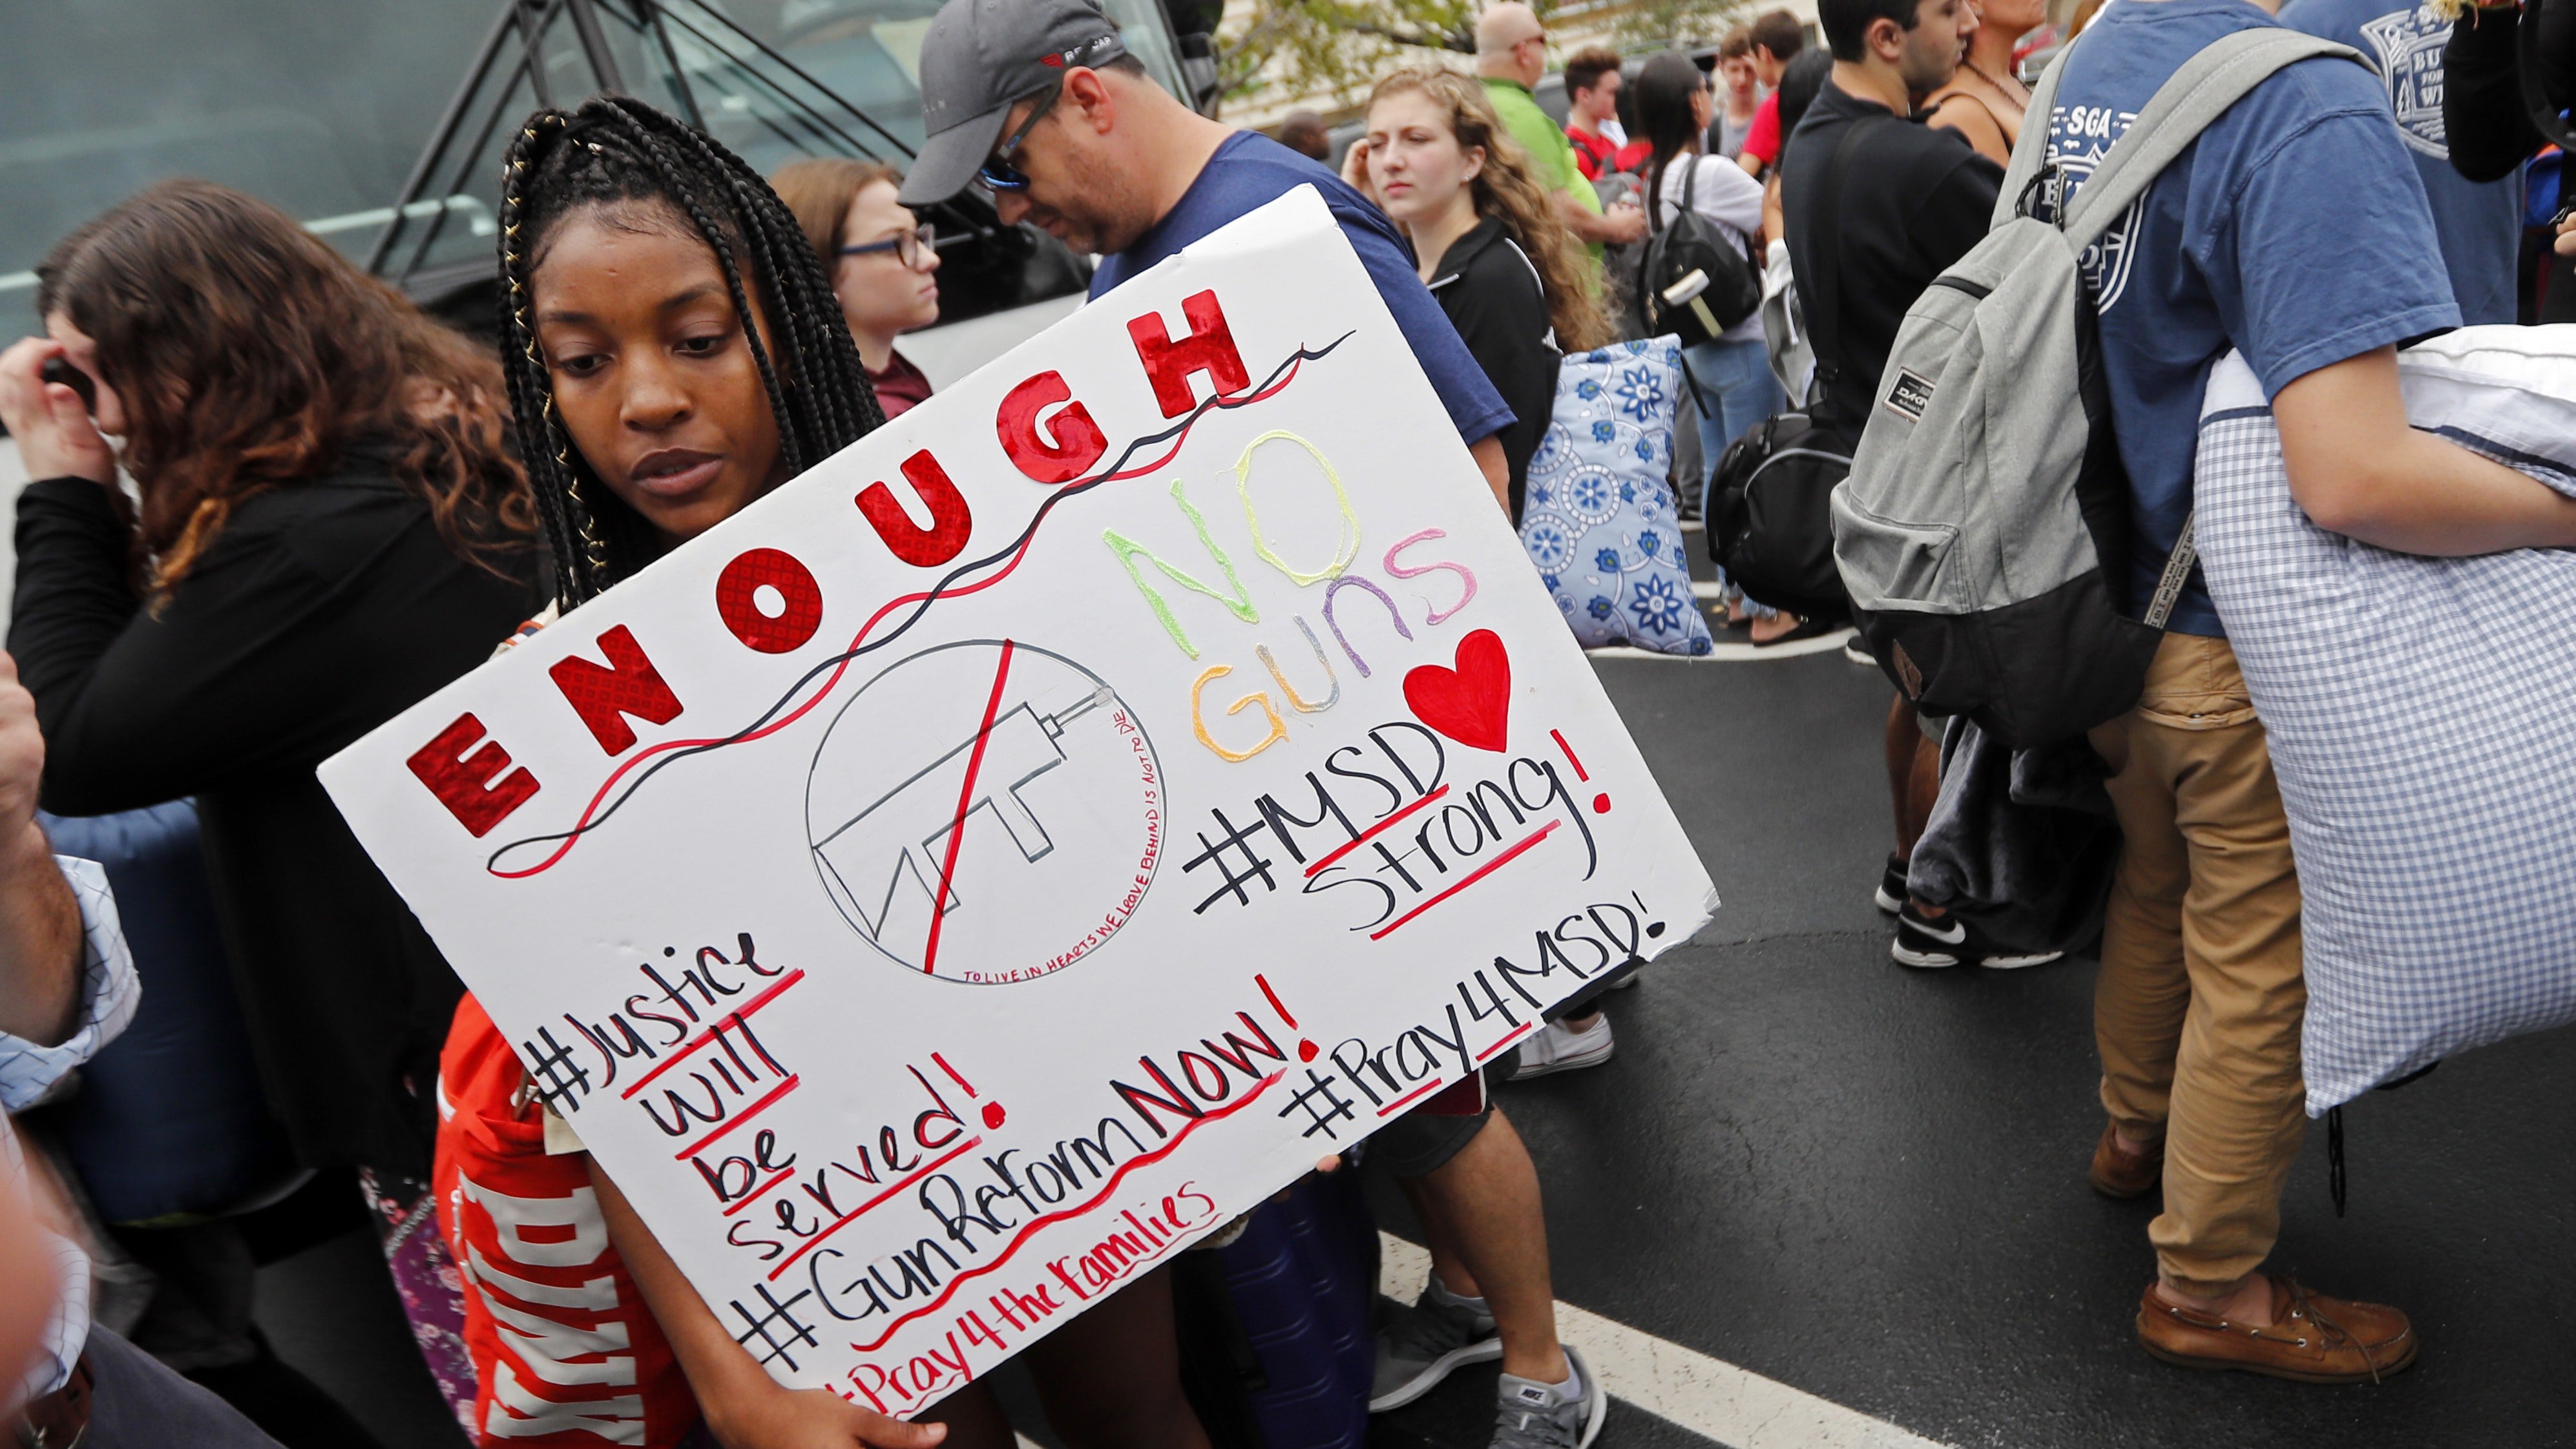 ENOUGH
NO
GUNS
#MSD
Strong!
TO LIVE IN HEARTS WE Leave BEHIND IS NOT TO DIE
#Justice
will
be
served!
#GunReform NOW!
#Pray4MSD!
#Pray4the families
PINK
SGA
DAKINE
NIKE